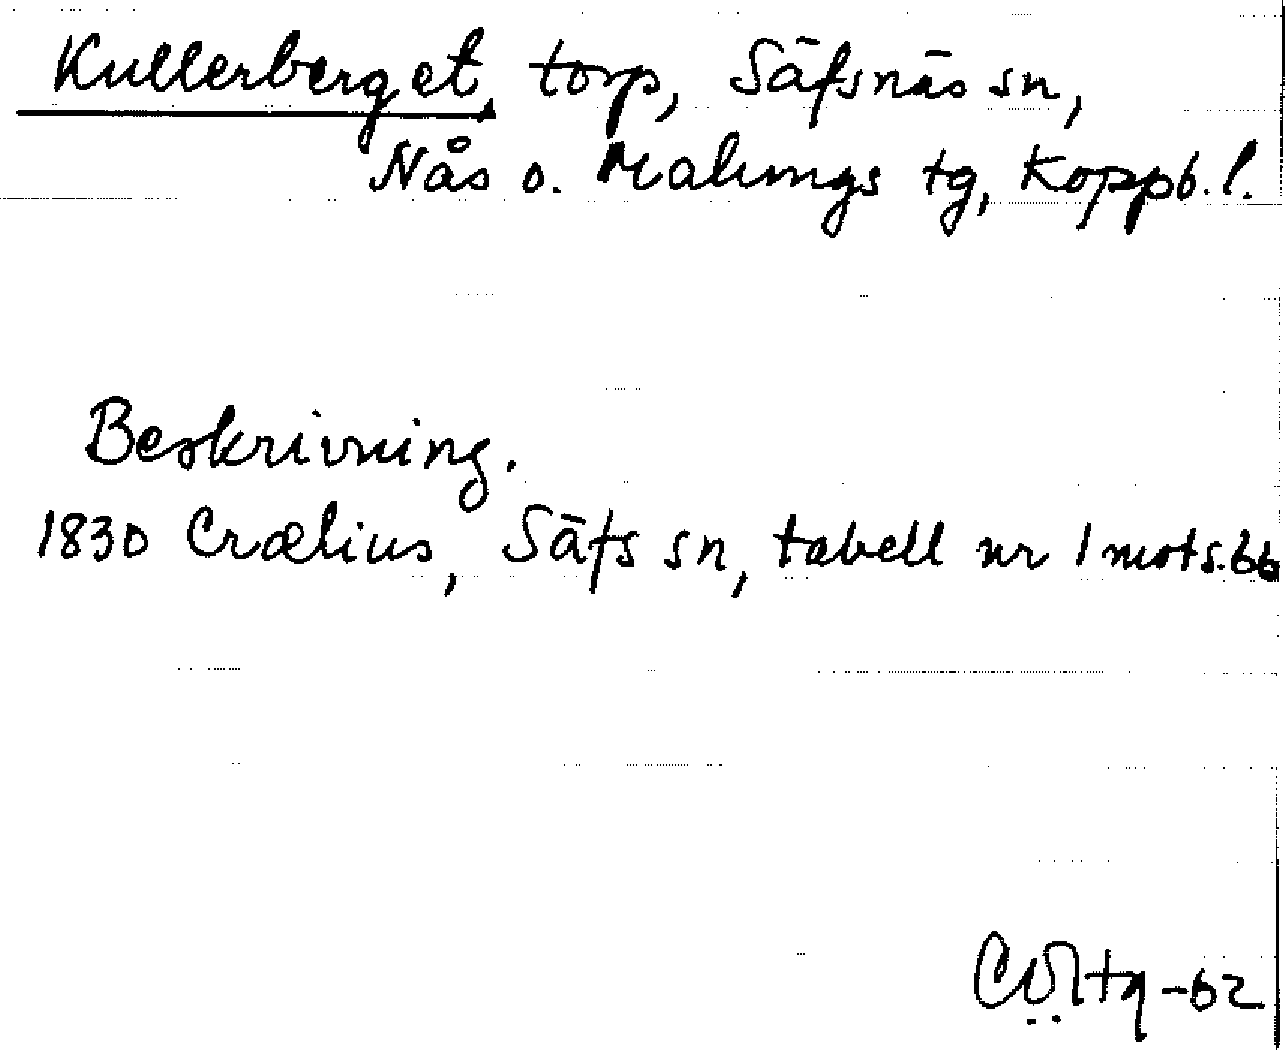 Kullerberget, torp, Säfsnäs sn,
Nås o. Malungs tg, Koppb. l.
Beskrivning.
1830 Crælius, Säfs sn, tabell nr 1 mots. 66
-62